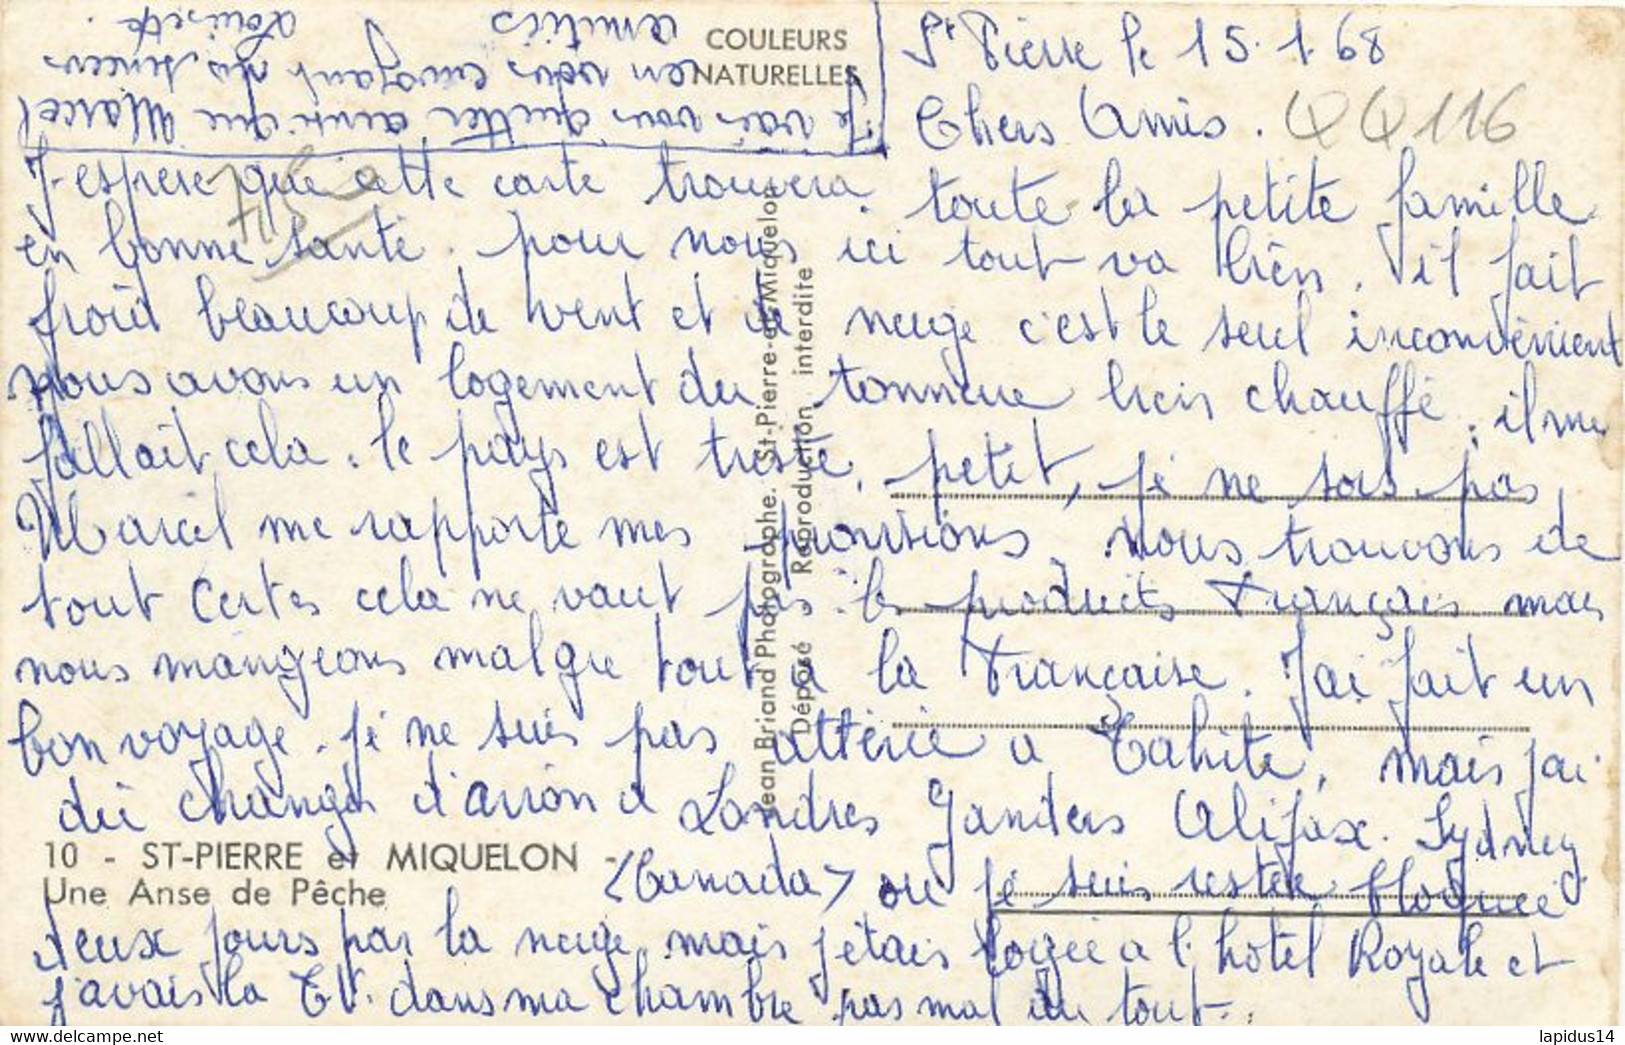 St Pierre le 15.1.68
Chers Amis.
QQ116
J'espere que cette carte trouvera toute la petite famille
en bonne santé. pour nous ici tout va bien. il fait
froid beaucoup de vent et de neige c'est le seul inconvénient
nous avons un logement du tonnerre bien chauffé. il me
fallait cela. le pays est triste, petit, je ne sors pas,
Marcel me rapporte mes provisions, nous trouvons de
tout certes cela ne vaut pas les produits Français mais
nous mangeons malgre tout a la Française. J'ai fait un
bon voyage. je ne suis pas atterie a Tahiti, mais j'ai
du changé d'avion a Londres Ganders Alifax. Sydney
(Canada) ou je suis restée bloquée
deux jours par la neige, mais j'etais logée a l'hôtel Royale et
j'avais la TV. dans ma chambre pas mal du tout..
Je vais vous quitter ainsi que Marcel
en vous envoyant nos sincers
amitiés
Louisette.
COULEURS
NATURELLES
Jean Briand Photographe. St-Pierre-et-Miquelon
Déposé Reproduction interdite
10 - ST-PIERRE et MIQUELON -
Une Anse de Pêche
lapidus14